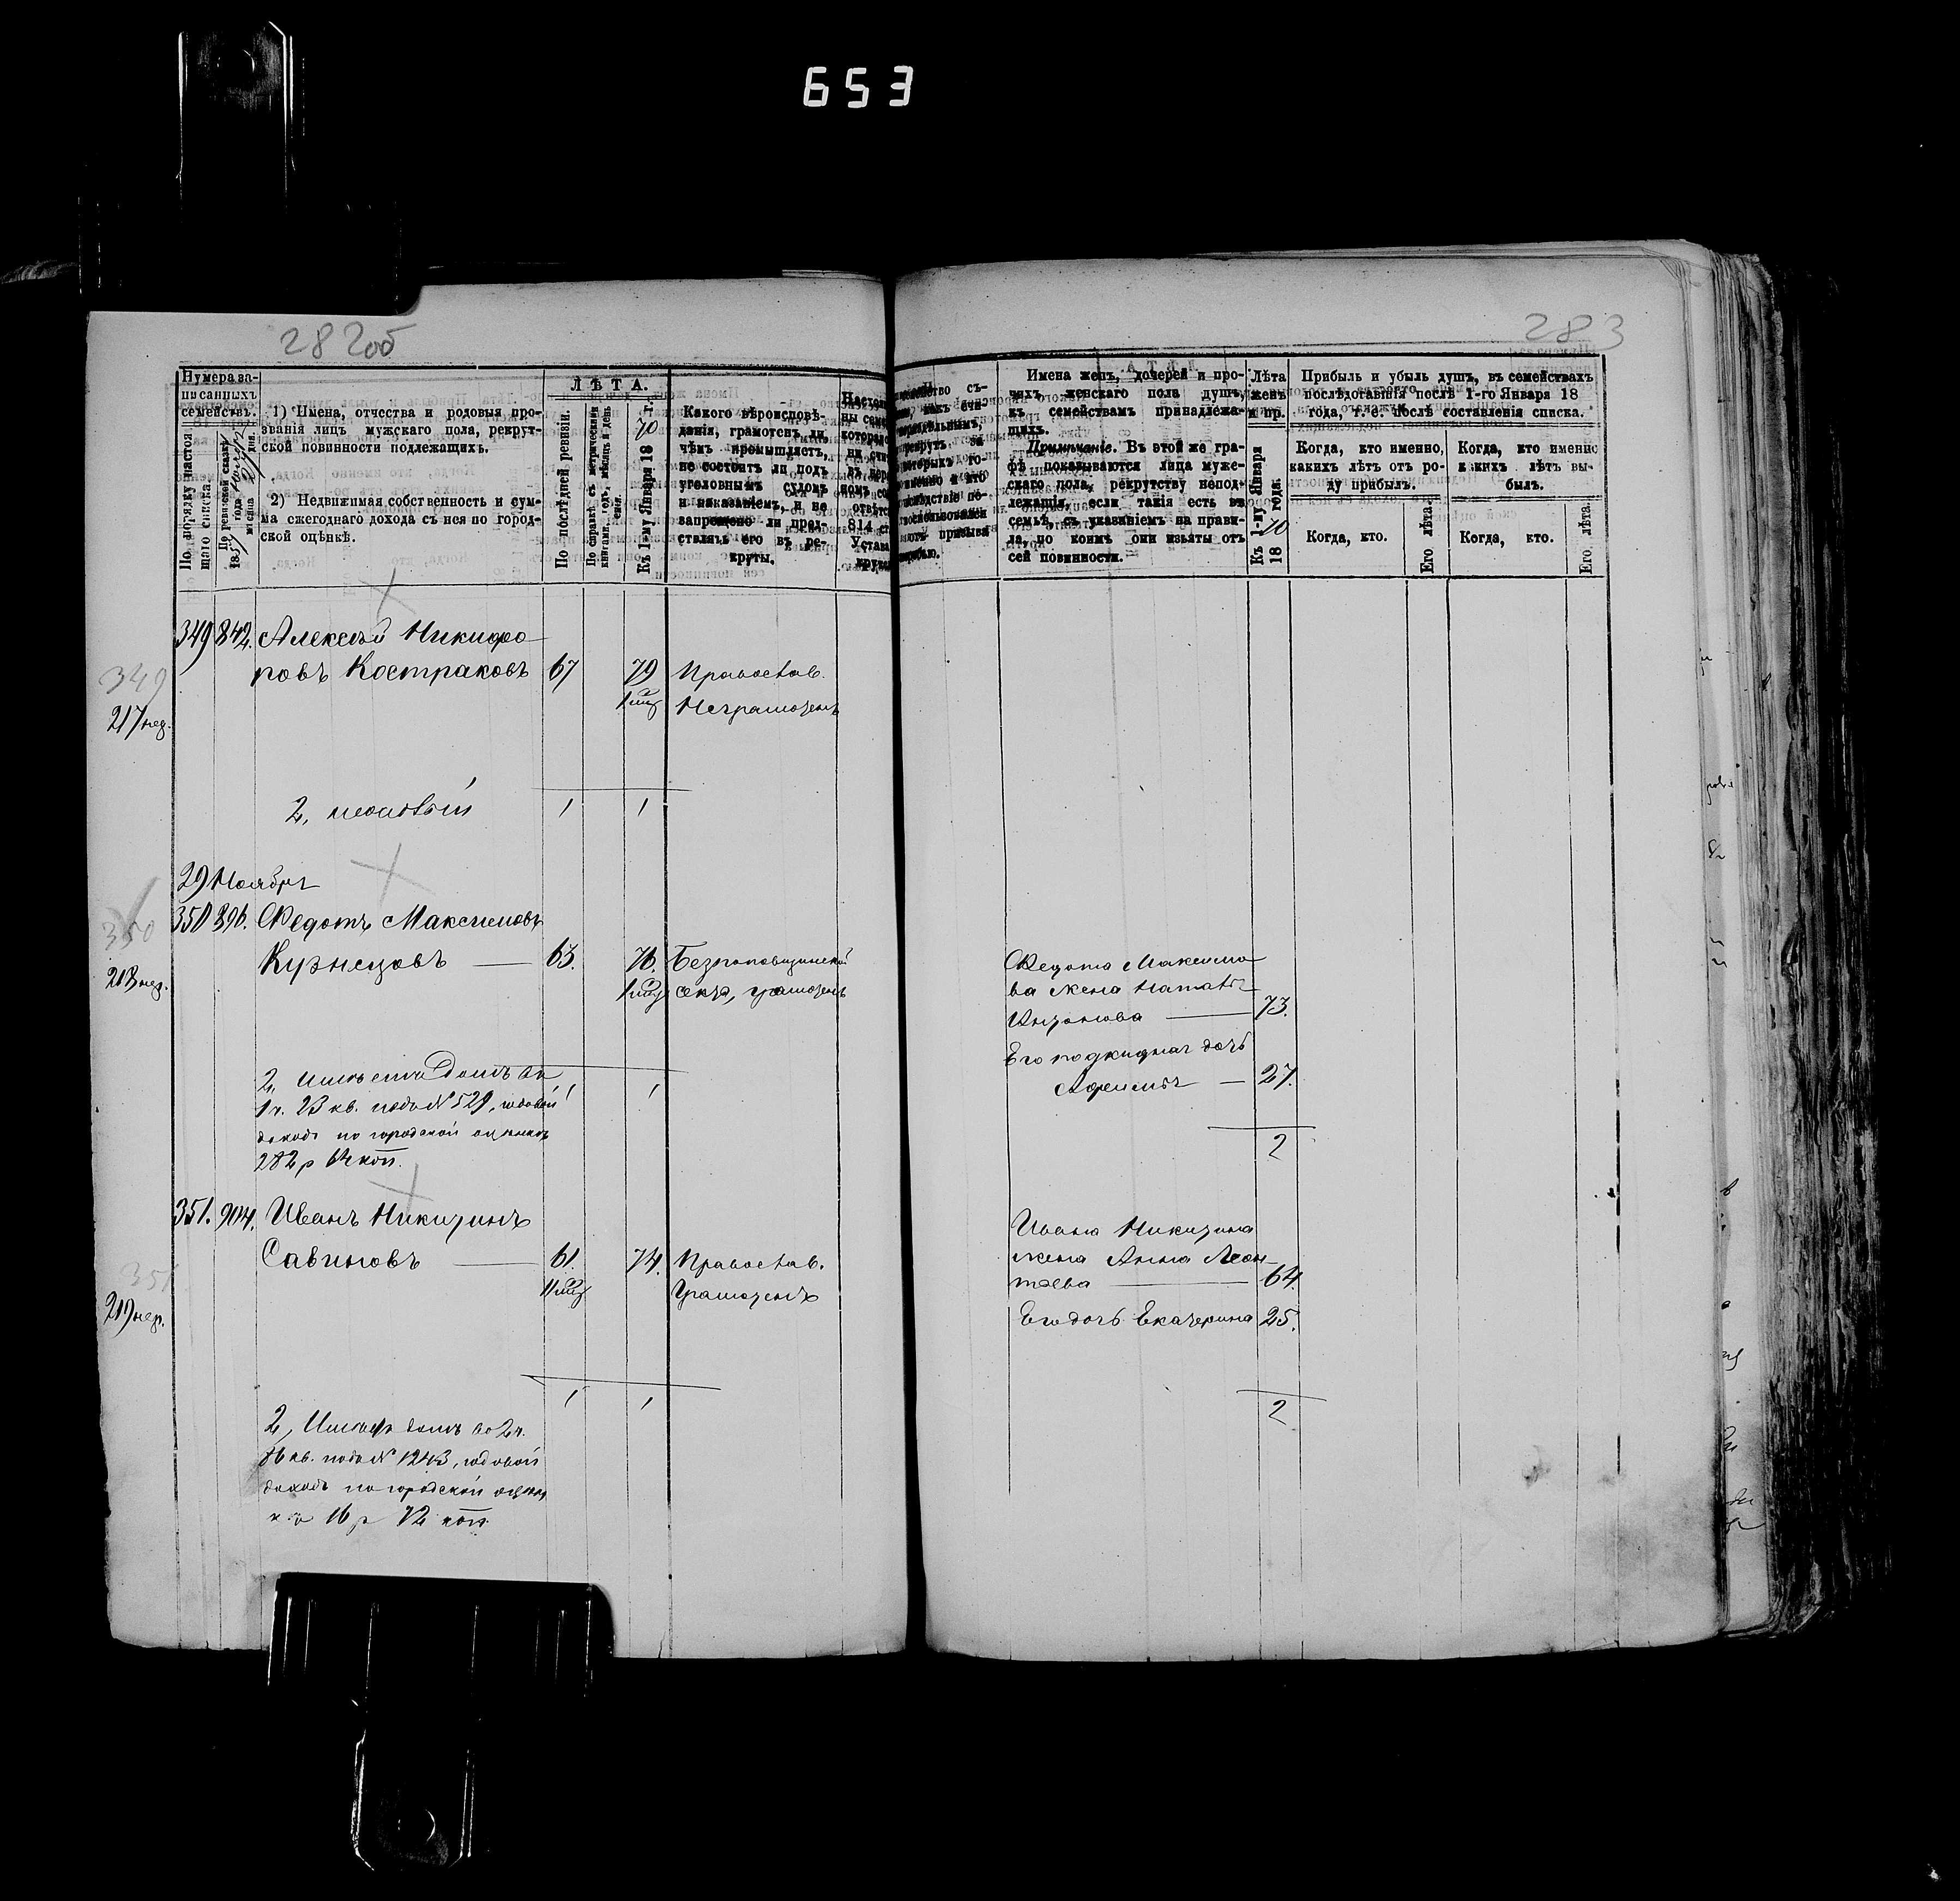 653
282об
283
Нумера за-
писанныхъ
семействъ.
По порядку настоя-
щаго списка.
По ревизской сказкѣ
185 года
мѣсяца дня.
1) Имена, отчества и родовыя про-
званія лицъ мужскаго пола, рекрут-
ской повинности подлежащихъ.
2) Недвижимая собственность и сум-
ма ежегоднаго дохода съ нея по город-
ской оцѣнкѣ.
ЛѢТА.
По послѣдней ревизіи.
По справкѣ съ метрическими
книгами, годъ, мѣсяцъ и день
Къ 1-му Января 1870 г.
Какого вѣроисповѣ-
данія, грамотенъ ли,
чѣмъ промышляетъ,
не состоитъ ли подъ
уголовнымъ судомъ
и наказаніемъ, и не
запрещено ли пред-
ставлять его въ ре-
круты.
Имена женъ, дочерей и про-
чихъ, женскаго пола душъ,
къ семействамъ принадлежа-
щихъ.
Примѣчаніе. Въ этой же гра-
фѣ показываются лица муже-
скаго пола, рекрутству непод-
лежащія, если такія есть въ
семьѣ, съ указаніемъ на прави-
ла, по коимъ они изъяты отъ
сей повинности.
Лѣта
женъ
и пр.
Къ 1-му Января
1870 года.
Прибыль и убыль душъ, въ семействахъ
послѣдовавшія послѣ 1-го Января 18
года, т. е. послѣ составленія списка.
Когда, кто именно,
какихъ лѣтъ отъ ро-
ду прибылъ.
Когда, кто именно
какихъ лѣтъ вы-
былъ.
Когда, кто.
Его лѣта.
Когда, кто.
Его лѣта.
349 842. Алексѣй Никифо-
ровъ Костраковъ 67 79 Православ.
349
217 нед. Неграмотенъ
2, 1 1
29 Ноября
350 896. Ѳедотъ Максимовъ
350
Кузнецовъ — 63. 76. Безпоповщинской
218 нед. секты, грамотенъ
Ѳедота Максимо-
ва жена Наталья
Антонова — 73.
Его подкидная дочь
Афимья — 27.
2
2, Имѣетъ Домъ въ
1 ч. 23 кв. подъ № 529, годовой 1 1
доходъ по городской оцѣнкѣ
282 р 64 коп.
351. 904. Иванъ Никитинъ
Савиновъ — 61. 74. Православ.
351
219 нед. Грамотенъ
Ивана Никитина
жена Анна Леон-
тьева — 64.
Его дочь Екатерина 25.
2
1 1
2, Имѣетъ домъ во 2 ч.
86 кв. подъ № 1243, годовой
доходъ по городской оцѣн-
кѣ 16 р 72 коп.